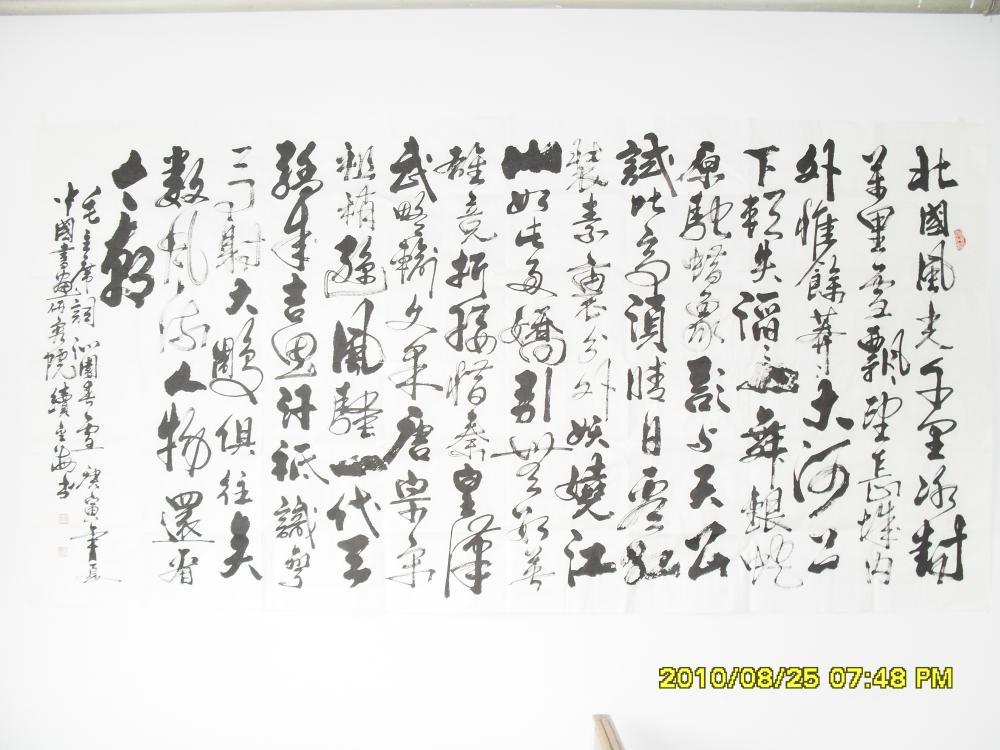 北國風光千里冰封
萬里雪飄望長城内
外惟餘莽々大河上
下頓失滔々山舞銀蛇
原馳蜡象欲与天公
試比高須晴日看紅
裝素裹分外妖嬈江
山如此多嬌引無數英
雄竞折腰惜秦皇漢
武略輸文采唐宗宋
祖稍遜風騷一代天
驕成吉思汗祗識彎
弓射大雕俱往矣
數風流人物還看
今朝
毛主席詞沁園春雪 庚寅年夏
中國書畫研究院續金海書
2010/08/25 07:48 PM